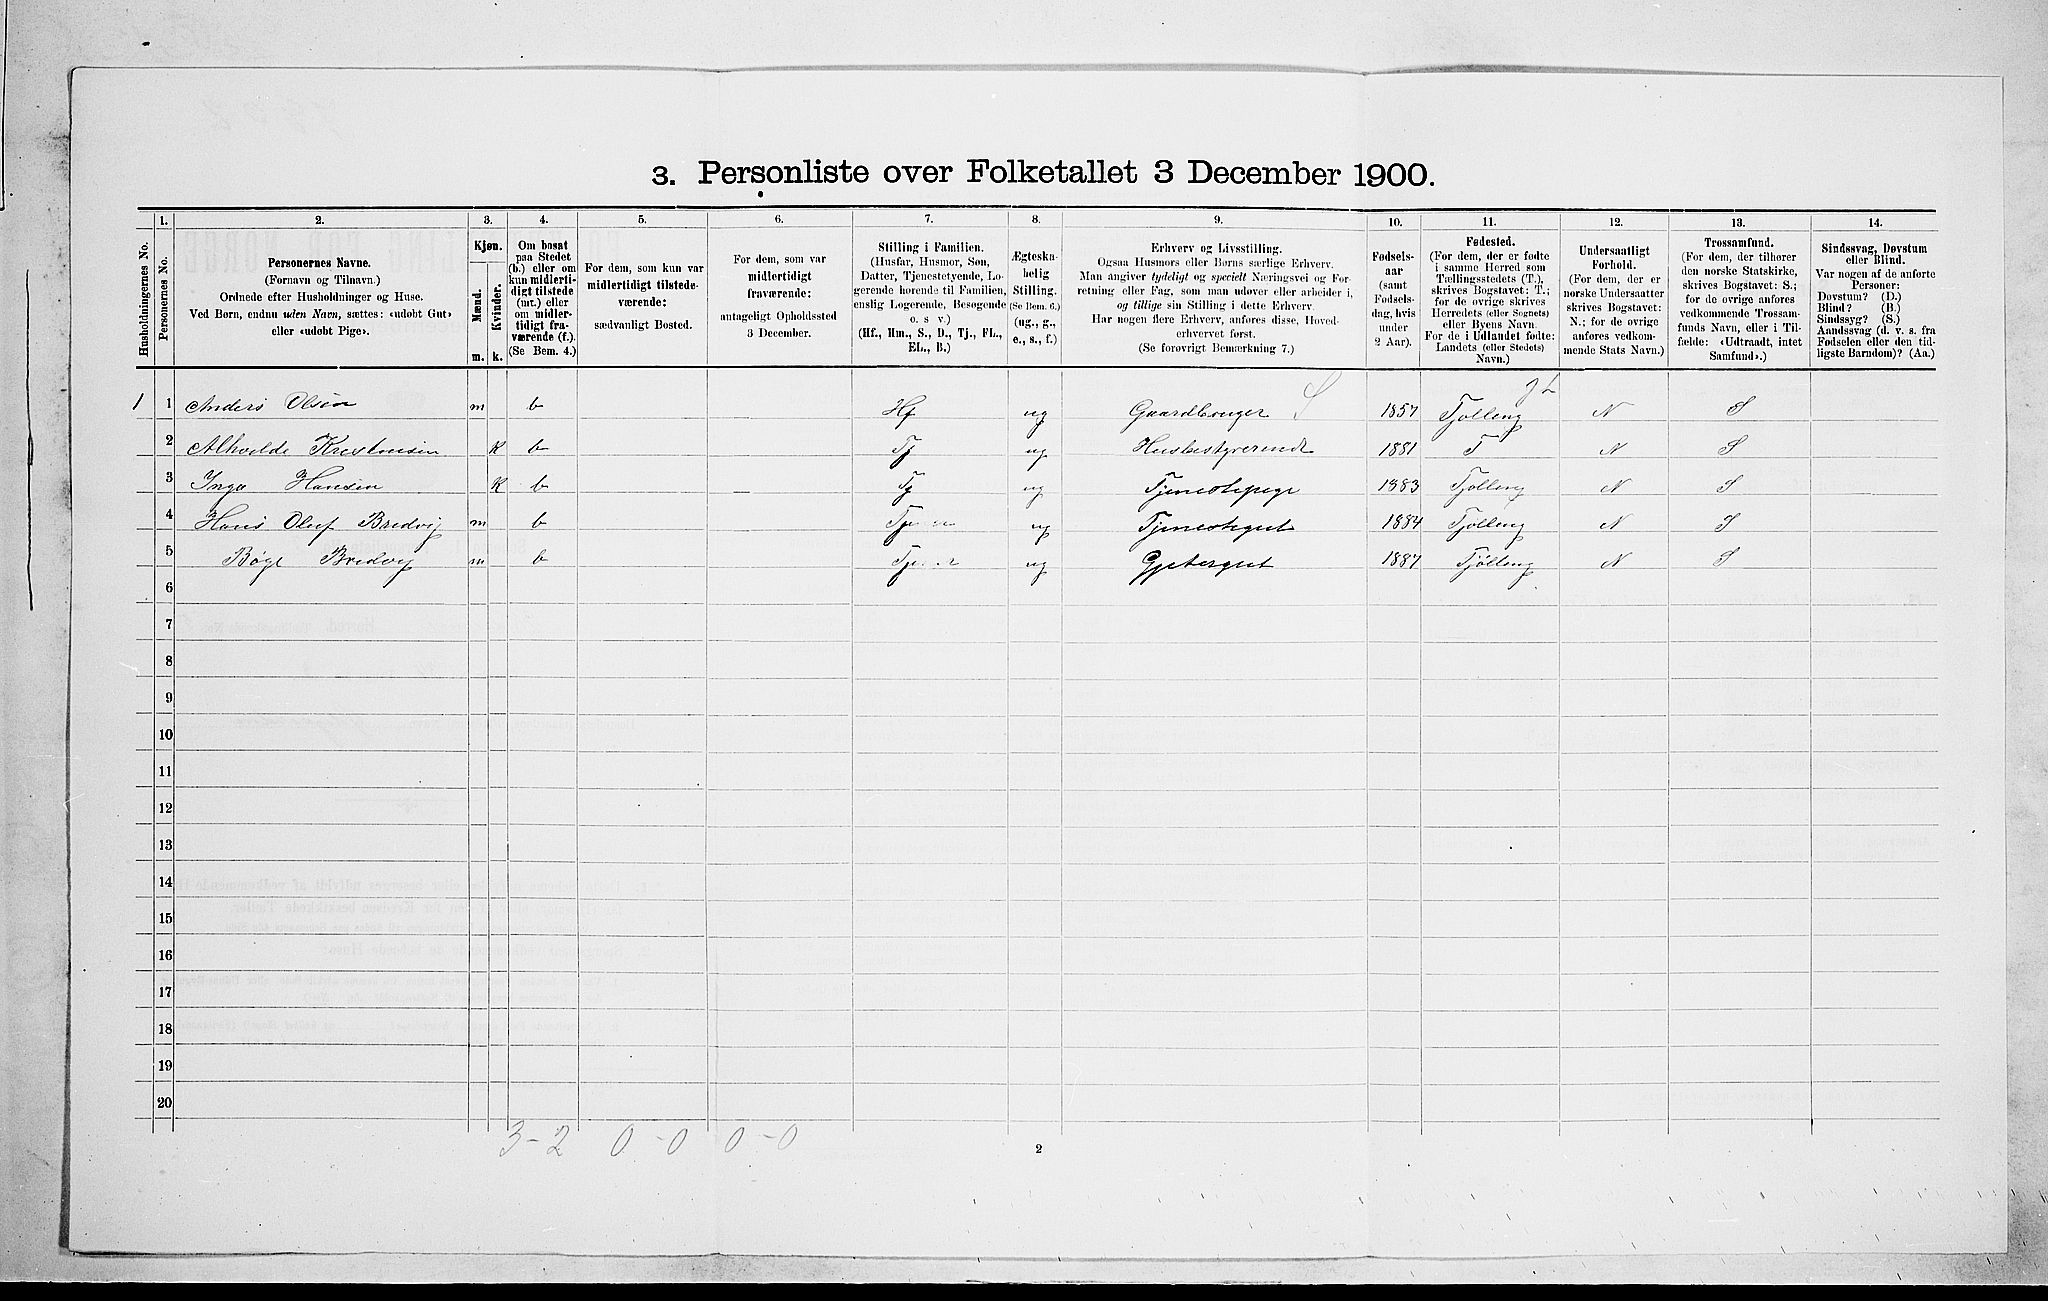 3. Personliste over Folketallet 3 December 1900.
Husholdningernes No.
1.
Personernes No.
2.
Personernes Navne.
(Fornavn og Tilnavn.)
Ordnede efter Husholdninger og Huse.
Ved Børn, endnu uden Navn, sættes: «udøbt Gut»
eller «udøbt Pige».
3.
Kjøn.
Mænd.
Kvinder.
m. k.
4.
Om bosat
paa Stedet
(b.) eller om
kun midlerti-
digt tilstede
(mt.) eller
om midler-
tidigt fra-
værende (f.).
(Se Bem. 4.)
5.
For dem, som kun var
midlertidigt tilstede-
værende:
sædvanligt Bosted.
6.
For dem, som var
midlertidigt
fraværende:
antageligt Opholdssted
3 December.
7.
Stilling i Familien.
(Husfar, Husmor, Søn,
Datter, Tjenestetyende, Lo-
gerende hørende til Familien,
enslig Logerende, Besøgende
o. s. v.)
(Hf., Hm., S., D., Tj., FL.,
EL., B.)
8.
Ægteska-
belig
Stilling.
(Se Bem. 6.)
(ug., g.,
e., s., f.)
9.
Erhverv og Livsstilling.
Ogsaa Husmors eller Børns særlige Erhverv.
Man angiver tydeligt og specielt Næringsvei og For-
retning eller Fag, som man udøver eller arbeider i,
og tillige sin Stilling i dette Erhverv.
Har nogen flere Erhverv, anføres disse, Hoved-
erhvervet først.
(Se forøvrigt Bemærkning 7.)
10.
Fødsels-
aar
(samt
Fødsels-
dag, hvis
under
2 Aar).
11.
Fødested.
(For dem, der er fødte
i samme Herred som
Tællingsstedets (T.),
skrives Bogstavet: T.;
for de øvrige skrives
Herredets (eller Sognets)
eller Byens Navn.
For de i Udlandet fødte:
Landets (eller Stedets)
Navn.)
12.
Undersaatligt
Forhold.
(For dem, der er
norske Undersaatter
skrives Bogstavet:
N.; for de øvrige
anføres vedkom-
mende Stats Navn.)
13.
Trossamfund.
(For dem, der tilhører
den norske Statskirke,
skrives Bogstavet: S.;
for de øvrige anføres
vedkommende Trossam-
funds Navn, eller i Til-
fælde: «Udtraadt, intet
Samfund».)
14.
Sindssvag, Døvstum
eller Blind.
Var nogen af de anførte
Personer:
Døvstum? (D.)
Blind? (B.)
Sindssyg? (S.)
Aandssvag (d. v. s. fra
Fødselen eller den tid-
ligste Barndom)? (Aa.)
1 1 Anders Olsen m b Hf ug Gaardbruger S 1857 Tjølling N S
2 Alhvilde Kristensen k b Tj ug Husbestyrerinde 1881 T N S
3 Inga Hansen k b Tj ug Tjenestepige 1883 Tjølling N S
4 Hans Oluf Bredvig m b Tjener ug Tjenestegut 1884 Tjølling N S
5 Bøge Bredvig m b Tjener ug Gjetergut 1887 Tjølling N S
6
7
8
9
10
11
12
13
14
15
16
17
18
19
20
3-2 0-0 0-0
2